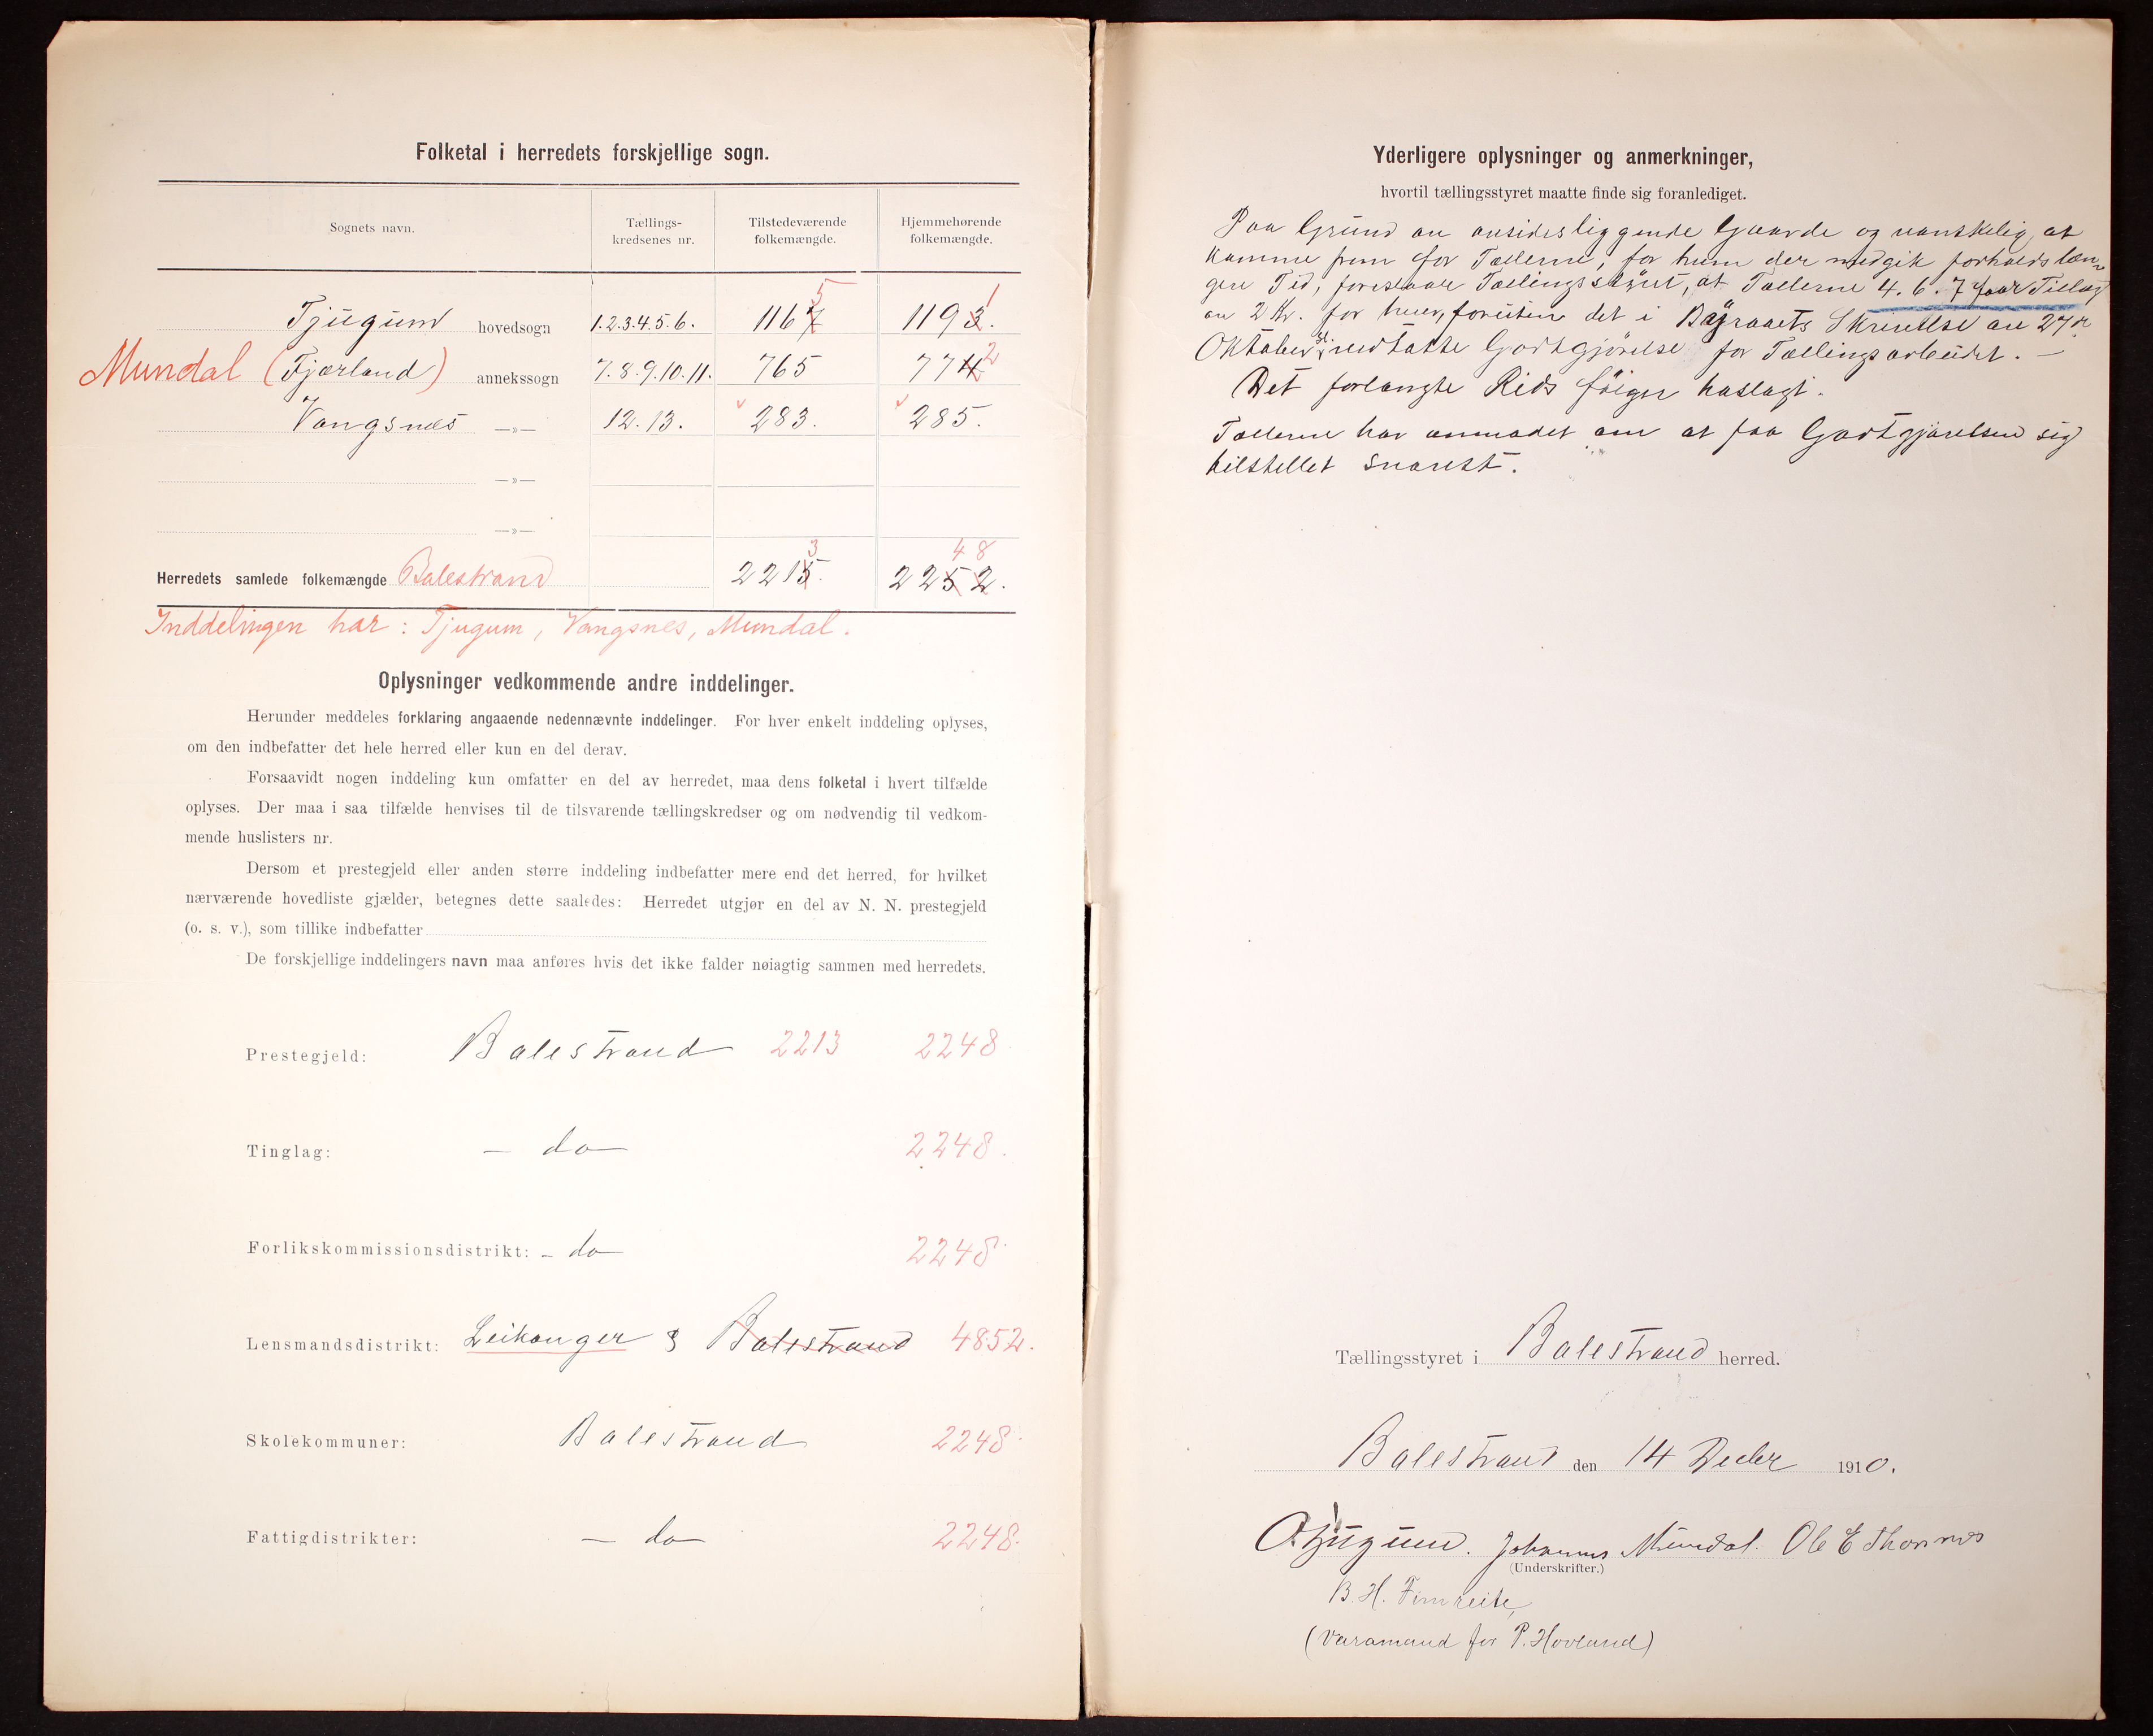 Folketal i herredets forskjellige sogn.
Sognets navn. Tællings-kredsenes nr. Tilstedeværende folkemængde. Hjemmehørende folkemængde.
Tjugum hovedsogn 1.2.3.4.5.6. 1167 5 1193. 1
Mundal (Fjærland) annekssogn 7.8.9.10.11. 765 774 2
Vangsnes —»— 12.13. 283. 285.
—»—
—»—
3 4 8
Herredets samlede folkemængde Balestrand 2215. 2252.
Inddelingen har: Tjugum, Vangsnes, Mundal.
Oplysninger vedkommende andre inddelinger.
Herunder meddeles forklaring angaaende nedennævnte inddelinger. For hver enkelt inddeling oplyses,
om den indbefatter det hele herred eller kun en del derav.
Forsaavidt nogen inddeling kun omfatter en del av herredet, maa dens folketal i hvert tilfælde
oplyses. Der maa i saa tilfælde henvises til de tilsvarende tællingskredser og om nødvendig til vedkom-
mende huslisters nr.
Dersom et prestegjeld eller anden større inddeling indbefatter mere end det herred, for hvilket
nærværende hovedliste gjælder, betegnes dette saaledes: Herredet utgjør en del av N. N. prestegjeld
(o. s. v.), som tillike indbefatter
De forskjellige inddelingers navn maa anføres hvis det ikke falder nøiagtig sammen med herredets.
Prestegjeld: Balestrand 2213 2248
Tinglag: — do — 2248.
Forlikskommissionsdistrikt: – do — 2248.
Lensmandsdistrikt: Leikanger & Balestrand 4852.
Skolekommuner: Balestrand 2248.
Fattigdistrikter: — do — 2248.
Yderligere oplysninger og anmerkninger,
hvortil tællingsstyret maatte finde sig foranlediget.
Paa Grund av avsidesliggende Gaarde og vanskelig at
komme frem for Tællerne, for hvem der medgik forholdslæn-
gere Tid, foreslaar Tællingsstyret, at Tællerne 4. 6. 7 faar Tillæg
av 2 Kr. for hver, foruten det i Byraaets Skrivelse av 27de
Oktober vedtatte Godtgjørelse for Tællingsarbeidet. —
Det forlangte Rids følger vedlagt.
Tællerne har anmodet om at faa Godtgjørelsen sig
tilstellet snarest.
Tællingsstyret i Balestrand herred.
Balestrand den 14 Decbr 1910.
O. Tjugum. Johannes Mundal. Ole E Thorsnes
(Underskrifter.)
B. H. Fimreite,
(Varamand for P. Hovland)